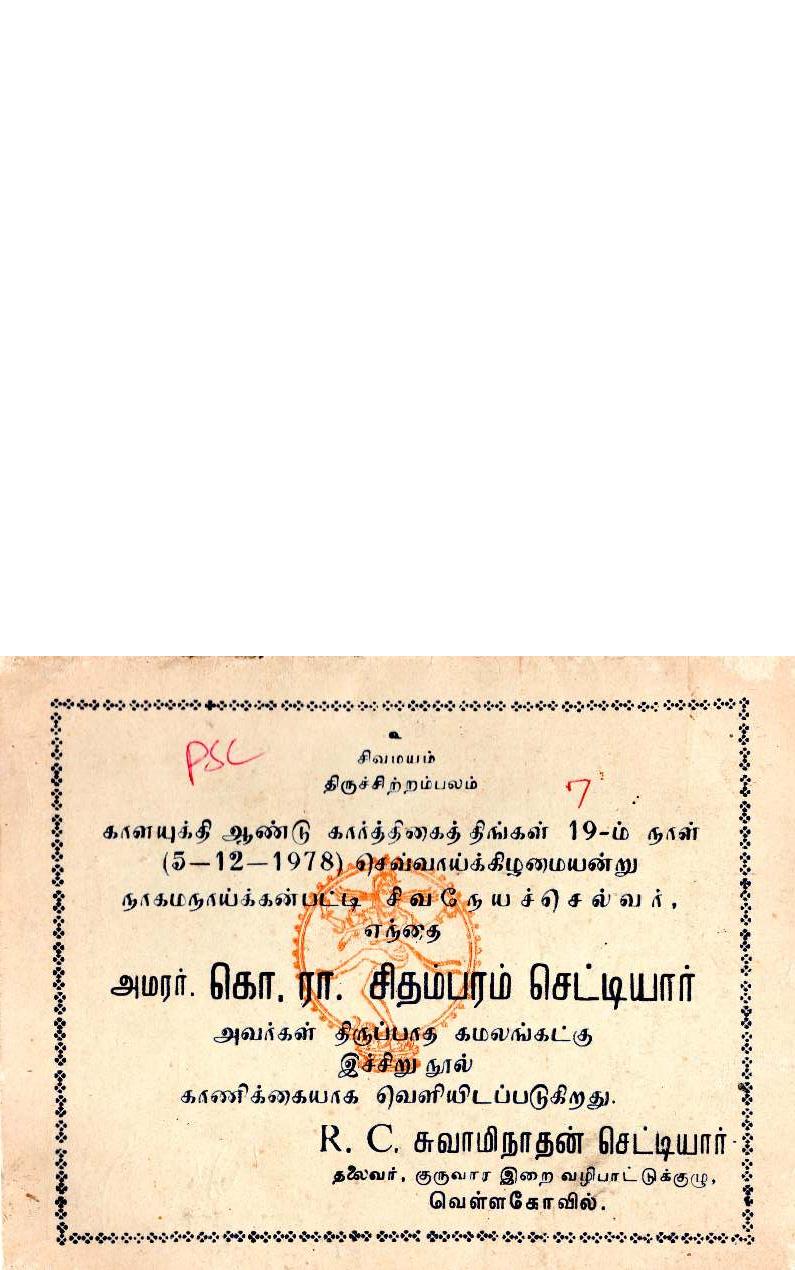 உ
PSC
சிவமயம்
திருச்சிற்றம்பலம்
7
காளயுக்தி ஆண்டு கார்த்திகைத் திங்கள் 19-ம் நாள்
(5—12—1978) செவ்வாய்க்கிழமையன்று
நாகமநாய்க்கன்பட்டி சிவநேயச்செல்வர்,
எந்தை
அமரர். கொ. ரா. சிதம்பரம் செட்டியார்
அவர்கள் திருப்பாத கமலங்கட்கு
இச்சிறு நூல்
காணிக்கையாக வெளியிடப்படுகிறது.
R. C. சுவாமிநாதன் செட்டியார்
தலைவர், குருவார இறை வழிபாட்டுக்குழு,
வெள்ளகோவில்.